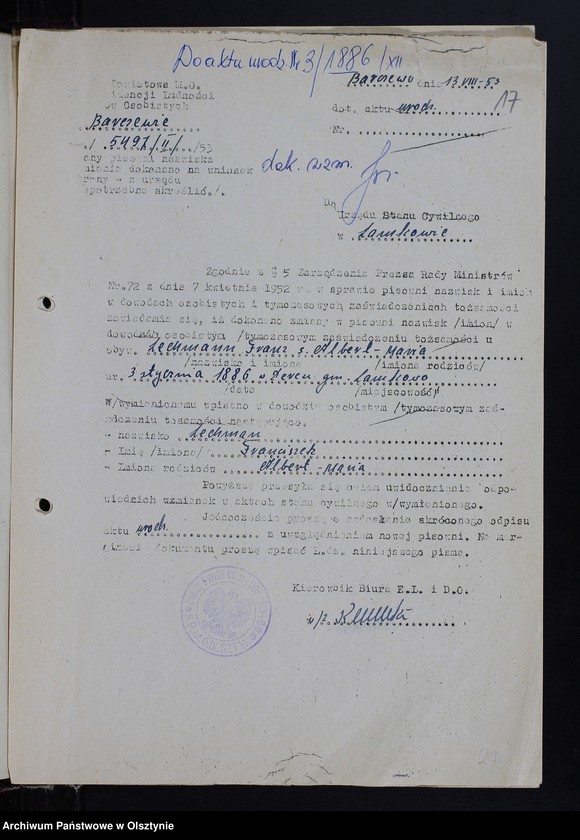 Do aktu urodz. Nr 3/1886/XII
Powiatowa M.O.
dencji Ludności
ów Osobistych
Barczewo dnia 13 VIII-53
17
Barczewie
dot. aktu urodz.
Nr.
./ 5497/II/ /53
any pisowni nazwiska
mienia dokonano na wniosek
rony - z urzędu
epotrzebne skreślić./.
dok. wzm.
Do
Urzędu Stanu Cywilnego
w Lamkowie
Zgodnie z § 5 Zarządzenia Prezsa Rady Ministrów
Nr.72 z dnia 7 kwietnia 1952 w sprawie pisowni nazwisk i imion
w dowodach osobistych i tymczasowych zaświadczeniach tożsamości
zawiadamia się, iż dokonano zmiany w pisowni nazwisk /imion/ w
dowodzie osobistym /tymczasowym zaświadczeniu tożsamości u
obyw. Lechmann Franz s. Albert-Maria
/nazwisko i imiona /imiona rodziców/
ur. 3 stycznia 1886 w Dercu gm. Lamkowo
/data /miejscowość/
W/wymienionemu wpisano w dowodzie osobistym /tymczasowym zaś-
wiadczeniu tożsamości następująco.
- nazwisko Lechman
- Imię /imiona/ Franciszek
- Imiona rodziców Albert-Maria
Powyższe przesyła się celem uwidocznienia odpo-
wiednich wzmianek w aktach stanu cywilnego w/wymienionego.
Jednocześnie proszę o nadesłanie skróconego odpisu
aktu urodz. z uwzględnieniem nowej pisowni. Na mar-
ginesie dokumentu proszę wpisać L.dz. niniejszego pisma.
Kierownik Biura E.L. i D.O.
w/z
21
Archiwum Państwowe w Olsztynie